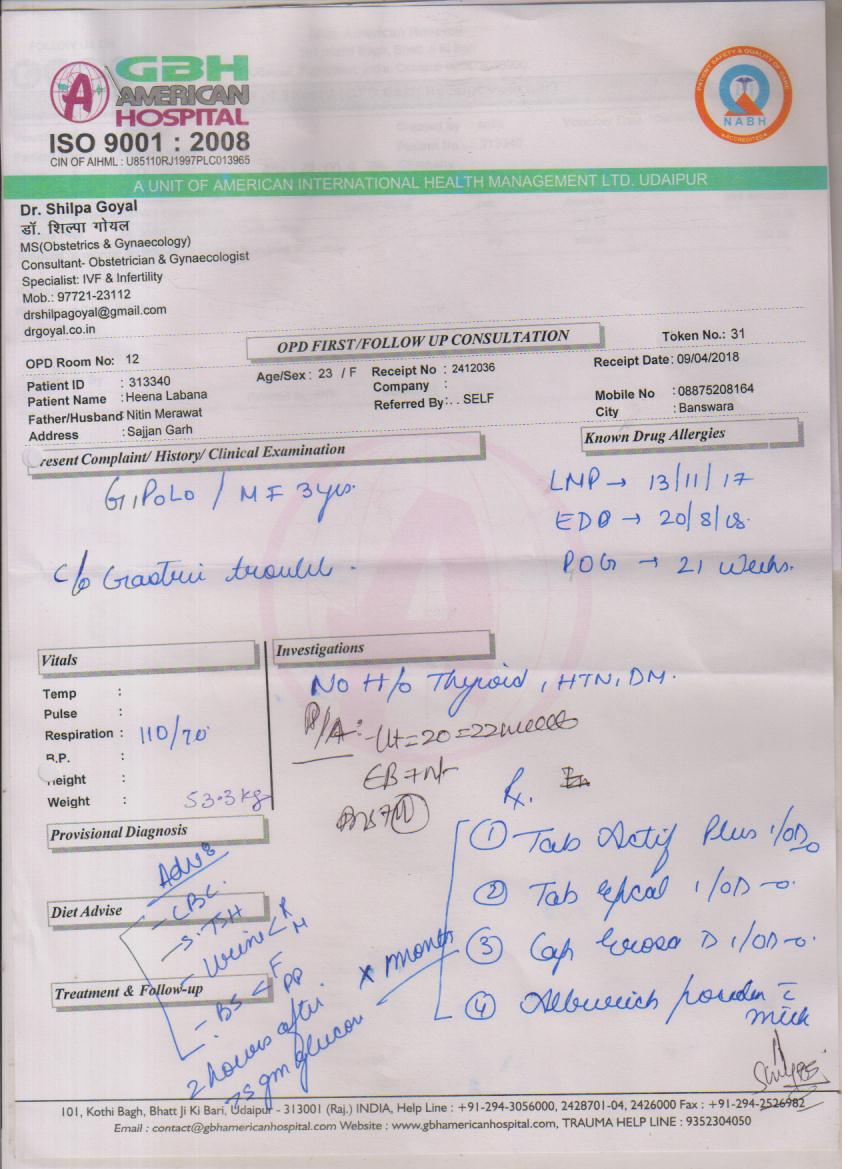 GBH
AMERICAN
HOSPITAL
ISO 9001 : 2008
CIN OF AIHML : U85110RJ1997PLC013965
PATIENT SAFETY & QUALITY OF CARE
NABH
ACCREDITED
A UNIT OF AMERICAN INTERNATIONAL HEALTH MANAGEMENT LTD. UDAIPUR
Dr. Shilpa Goyal
डॉ. शिल्पा गोयल
MS(Obstetrics & Gynaecology)
Consultant- Obstetrician & Gynaecologist
Specialist: IVF & Infertility
Mob.: 97721-23112
drshilpagoyal@gmail.com
drgoyal.co.in
OPD FIRST/FOLLOW UP CONSULTATION
Token No.: 31
OPD Room No: 12
Receipt Date: 09/04/2018
Patient ID : 313340
Age/Sex : 23 / F
Receipt No : 2412036
Patient Name : Heena Labana
Company :
Mobile No : 08875208164
Father/Husband: Nitin Merawat
Referred By: . . SELF
City : Banswara
Address : Sajjan Garh
resent Complaint/ History/ Clinical Examination
Known Drug Allergies
G1P0L0 / MF 3yrs.
LMP → 13/11/17
EDD → 20/8/18.
c/o Gastric trouble.
POG → 21 Weeks.
Vitals
Investigations
Temp :
Pulse :
Respiration : 110/70
B.P. :
eight :
Weight : 53.3 kg
No H/o Thyroid, HTN, DM.
P/A:- Ut = 20=22 weeks
Rx.
Provisional Diagnosis
Diet Advise
Treatment & Follow-up
Adv:
- CBC.
- S. TSH
- Urine < R
M
- BS < F
PP
2 hours after
75 gm glucon
x month
① Tab Actif Plus 1/OD
② Tab 1/OD
③ Cap D 1/OD
④ powder c̄
milk
101, Kothi Bagh, Bhatt Ji Ki Bari, Udaipur - 313001 (Raj.) INDIA, Help Line : +91-294-3056000, 2428701-04, 2426000 Fax : +91-294-2526982
Email : contact@gbhamericanhospital.com Website : www.gbhamericanhospital.com, TRAUMA HELP LINE : 9352304050